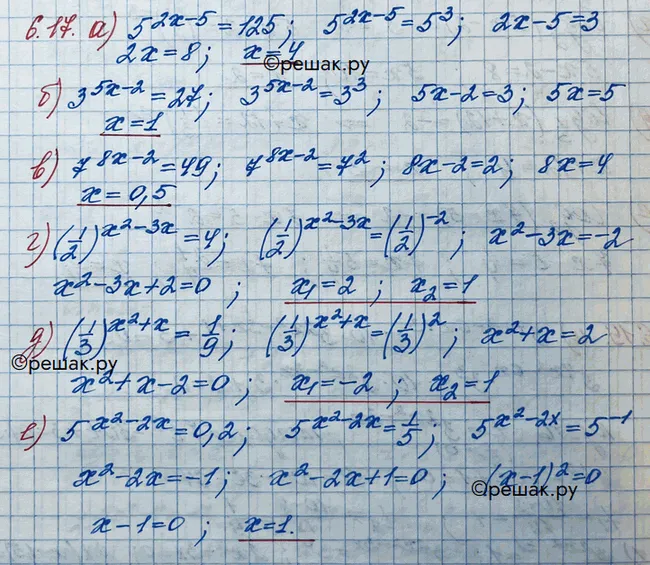 6.17. а) 5^(2x-5) = 125; 5^(2x-5) = 5^3; 2x-5=3
2x=8; x=4
©решак.ру
б) 3^(5x-2) = 27; 3^(5x-2) = 3^3; 5x-2=3; 5x=5
x=1
в) 7^(8x-2) = 49; 7^(8x-2) = 7^2; 8x-2=2; 8x=4
x=0,5
г) (1/2)^(x^2-3x) = 4; (1/2)^(x^2-3x) = (1/2)^(-2); x^2-3x=-2
x^2-3x+2=0; x₁=2; x₂=1
д) (1/3)^(x^2+x) = 1/9; (1/3)^(x^2+x) = (1/3)^2; x^2+x=2
©решак.ру
x^2+x-2=0; x₁=-2; x₂=1
е) 5^(x^2-2x) = 0,2; 5^(x^2-2x) = 1/5; 5^(x^2-2x) = 5^(-1)
x^2-2x=-1; x^2-2x+1=0; (x-1)^2=0
©решак.ру
x-1=0; x=1.